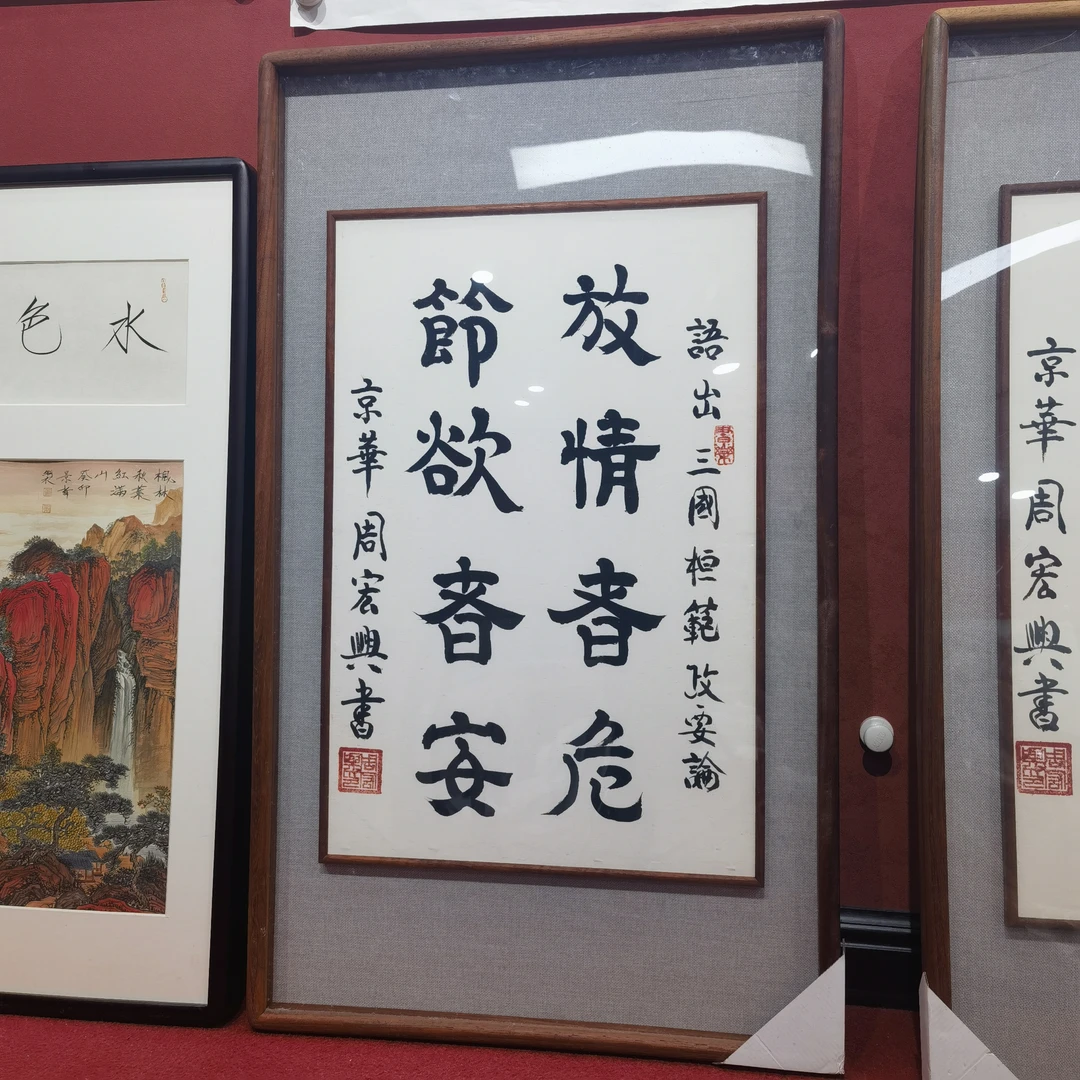 語出三國桓範政要論
放情者危
節欲者安
京華周宏興書
水色
楓林
秋葉
紅滿
山
癸卯
景華
京華周宏興書